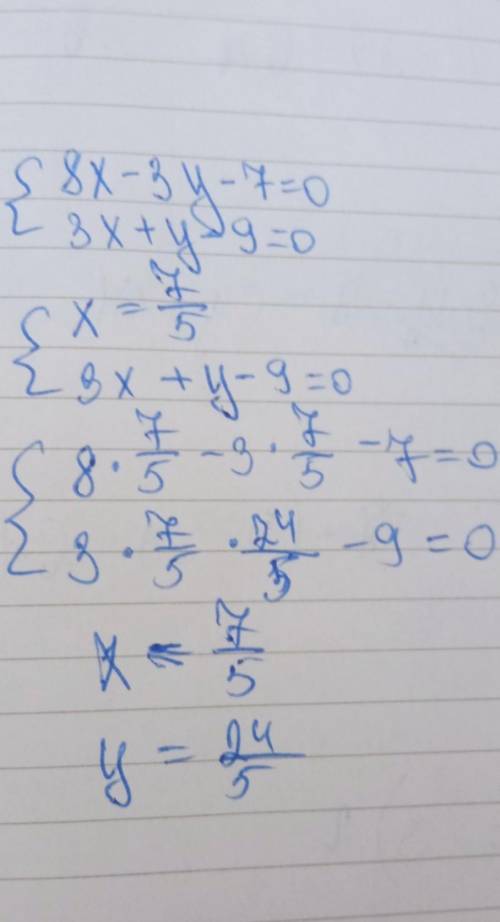 { 8x - 3y - 7 = 0
3x + y - 9 = 0
{ x = 7/5
3x + y - 9 = 0
{ 8 · 7/5 - 3 · 7/5 - 7 = 0
3 · 7/5 · 24/5 - 9 = 0
x = 7/5
y = 24/5